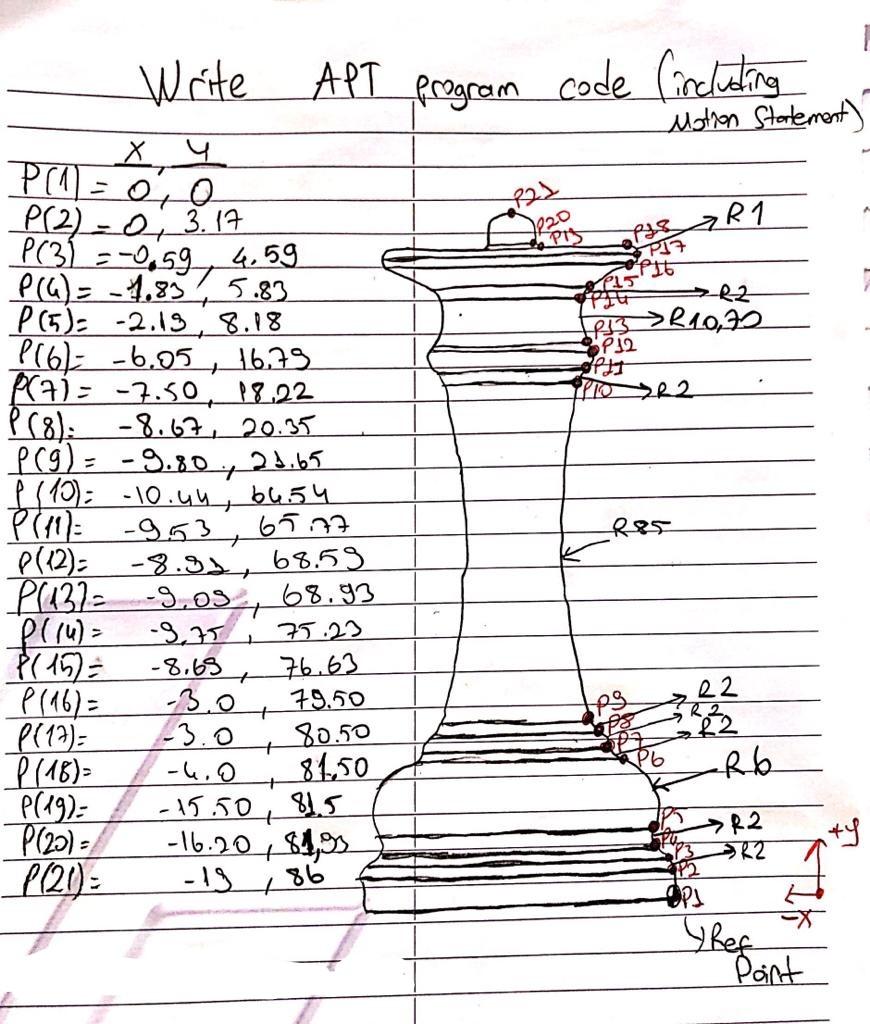 Write APT program code (including
Motion Statement)
X, Y
P(1) = 0, 0
P(2) = 0, 3.17
P(3) = -0.59, 4.59
P(4) = -1.83, 5.83
P(5) = -2.19, 8.18
P(6) = -6.05, 16.79
P(7) = -7.50, 18.22
P(8) = -8.67, 20.35
P(9) = -9.80, 21.65
P(10) = -10.44, 64.54
P(11) = -9.53, 65.77
P(12) = -8.91, 68.59
P(13) = -9.09, 68.93
P(14) = -9,75, 75.23
P(15) = -8.69, 76.63
P(16) = -3.0, 79.50
P(17) = -3.0, 80.50
P(18) = -4.0, 81.50
P(19) = -15.50, 81.5
P(20) = -16.20, 81,93
P(21) = -19, 86
P21
P20
P19
P18
P17
R1
P16
P15
P14
R2
R10,70
P13
P12
P11
P10
R2
R85
P9
R2
P8
R2
P7
R2
P6
R6
P5
P4
R2
P3
R2
P2
P1
+Y
-X
Ref
Point